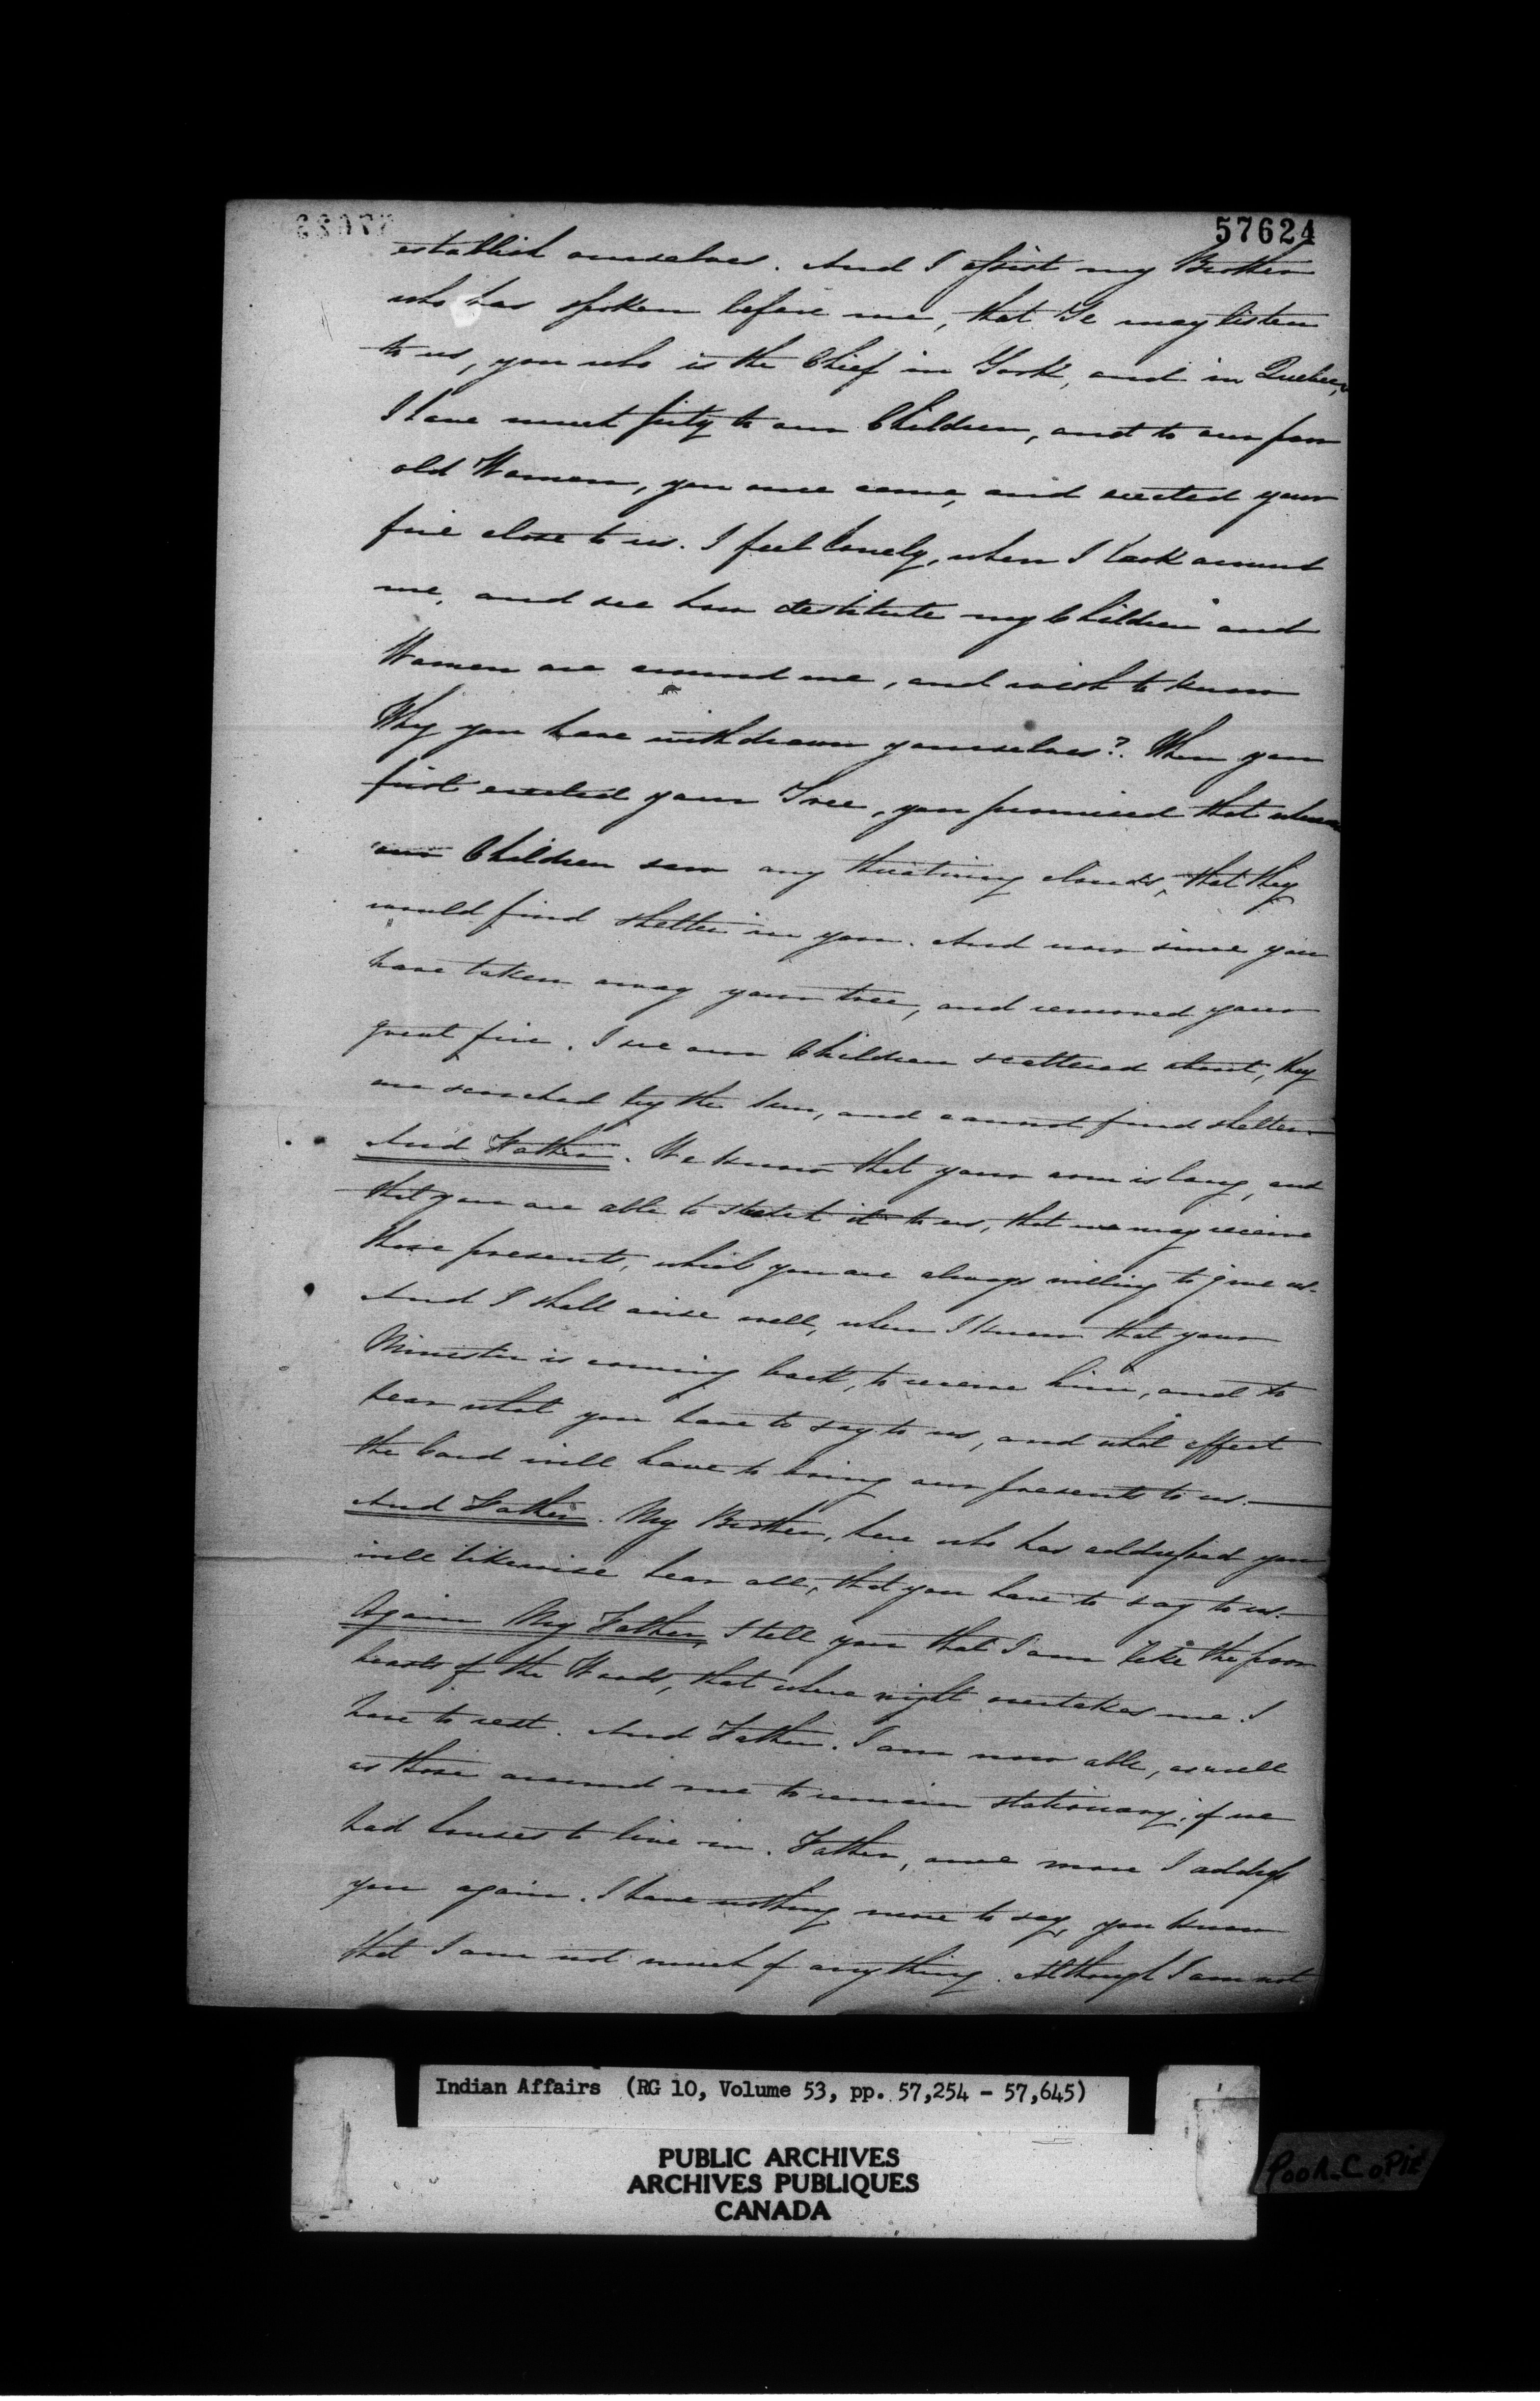 57624
establish ourselves. And I assist my Brother
who has spoken before me, that Ye may listen
to us, you who is the Chief in York, and in Quebec,
I have much pity to our Children, and to our poor
old Women, you once came, and erected your
fire close to us. I feel lonely, when I look around
me, and see how destitute my Children and
Women are around me, and wish to know
Why you have withdrawn yourselves?. When you
first erected your Tree, you promised that when
our Children saw any threatning clouds, that they
would find shelter in you. And now since you
have taken away your tree, and removed your
great fire. I see our Children scattered about, they
are scorched by the Sun, and cannot find shelter.
And Father. We know that your arm is long, and
that you are able to stretch it to us, that we may receive
those presents, which you are always willing to give us.
And I shall arise well, when I know that your
Minister is coming back, to receive him, and to
hear what you have to say to us, and what effect
the Card will have to bring our presents to us.
And Father. My Brother, here who has addressed you
will likewise hear all, that you have to say to us.
Again My Father, I tell you that I am like the poor
beasts of the Woods, that where night overtakes me. I
have to rest. And Father. I am now able, as well
as those around me to remain stationary, if we
had houses to live in. Father, once more I address
you again. I have nothing more to say, you know
that I am not much of anything. Although I am not
Indian Affairs (RG 10, Volume 53, pp. 57,254 - 57,645)
PUBLIC ARCHIVES
ARCHIVES PUBLIQUES
CANADA
POOR_COPIE